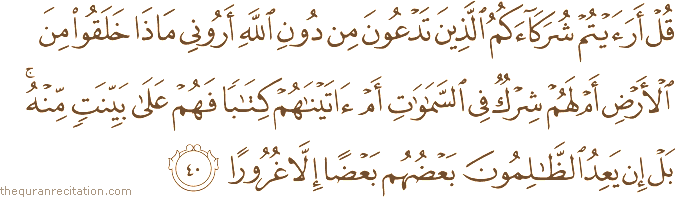 قُلۡ أَرَءَيۡتُمۡ شُرَكَآءَكُمُ ٱلَّذِينَ تَدۡعُونَ مِن دُونِ ٱللَّهِ أَرُونِي مَاذَا خَلَقُواْ مِنَ
ٱلۡأَرۡضِ أَمۡ لَهُمۡ شِرۡكٞ فِي ٱلسَّمَٰوَٰتِ أَمۡ ءَاتَيۡنَٰهُمۡ كِتَٰبٗا فَهُمۡ عَلَىٰ بَيِّنَتٖ مِّنۡهُۚ
بَلۡ إِن يَعِدُ ٱلظَّٰلِمُونَ بَعۡضُهُم بَعۡضًا إِلَّا غُرُورًا ٤٠
thequranrecitation.com